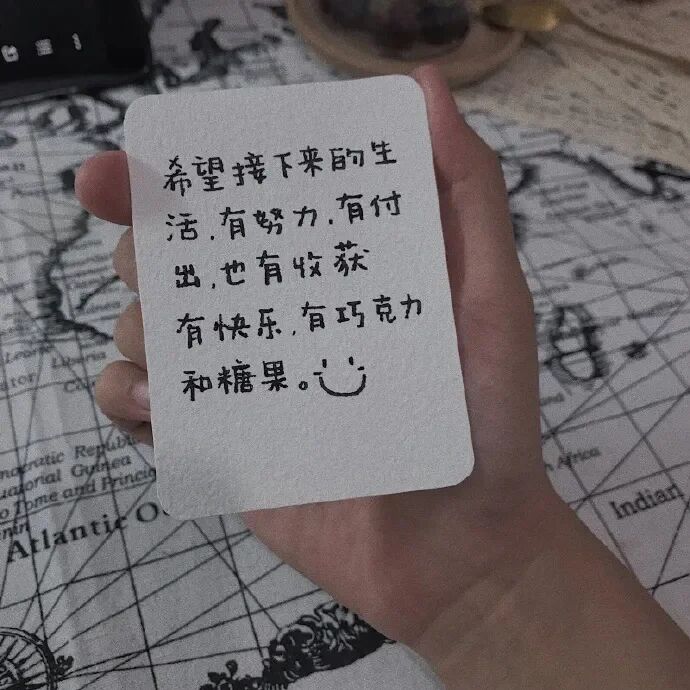 希望接下来的生
活,有努力,有付
出,也有收获
有快乐,有巧克力
和糖果。
Liberia
Democratic Republic
Equatorial Guinea
Sao Tome and Principe
Atlantic Oc
Africa
Indian